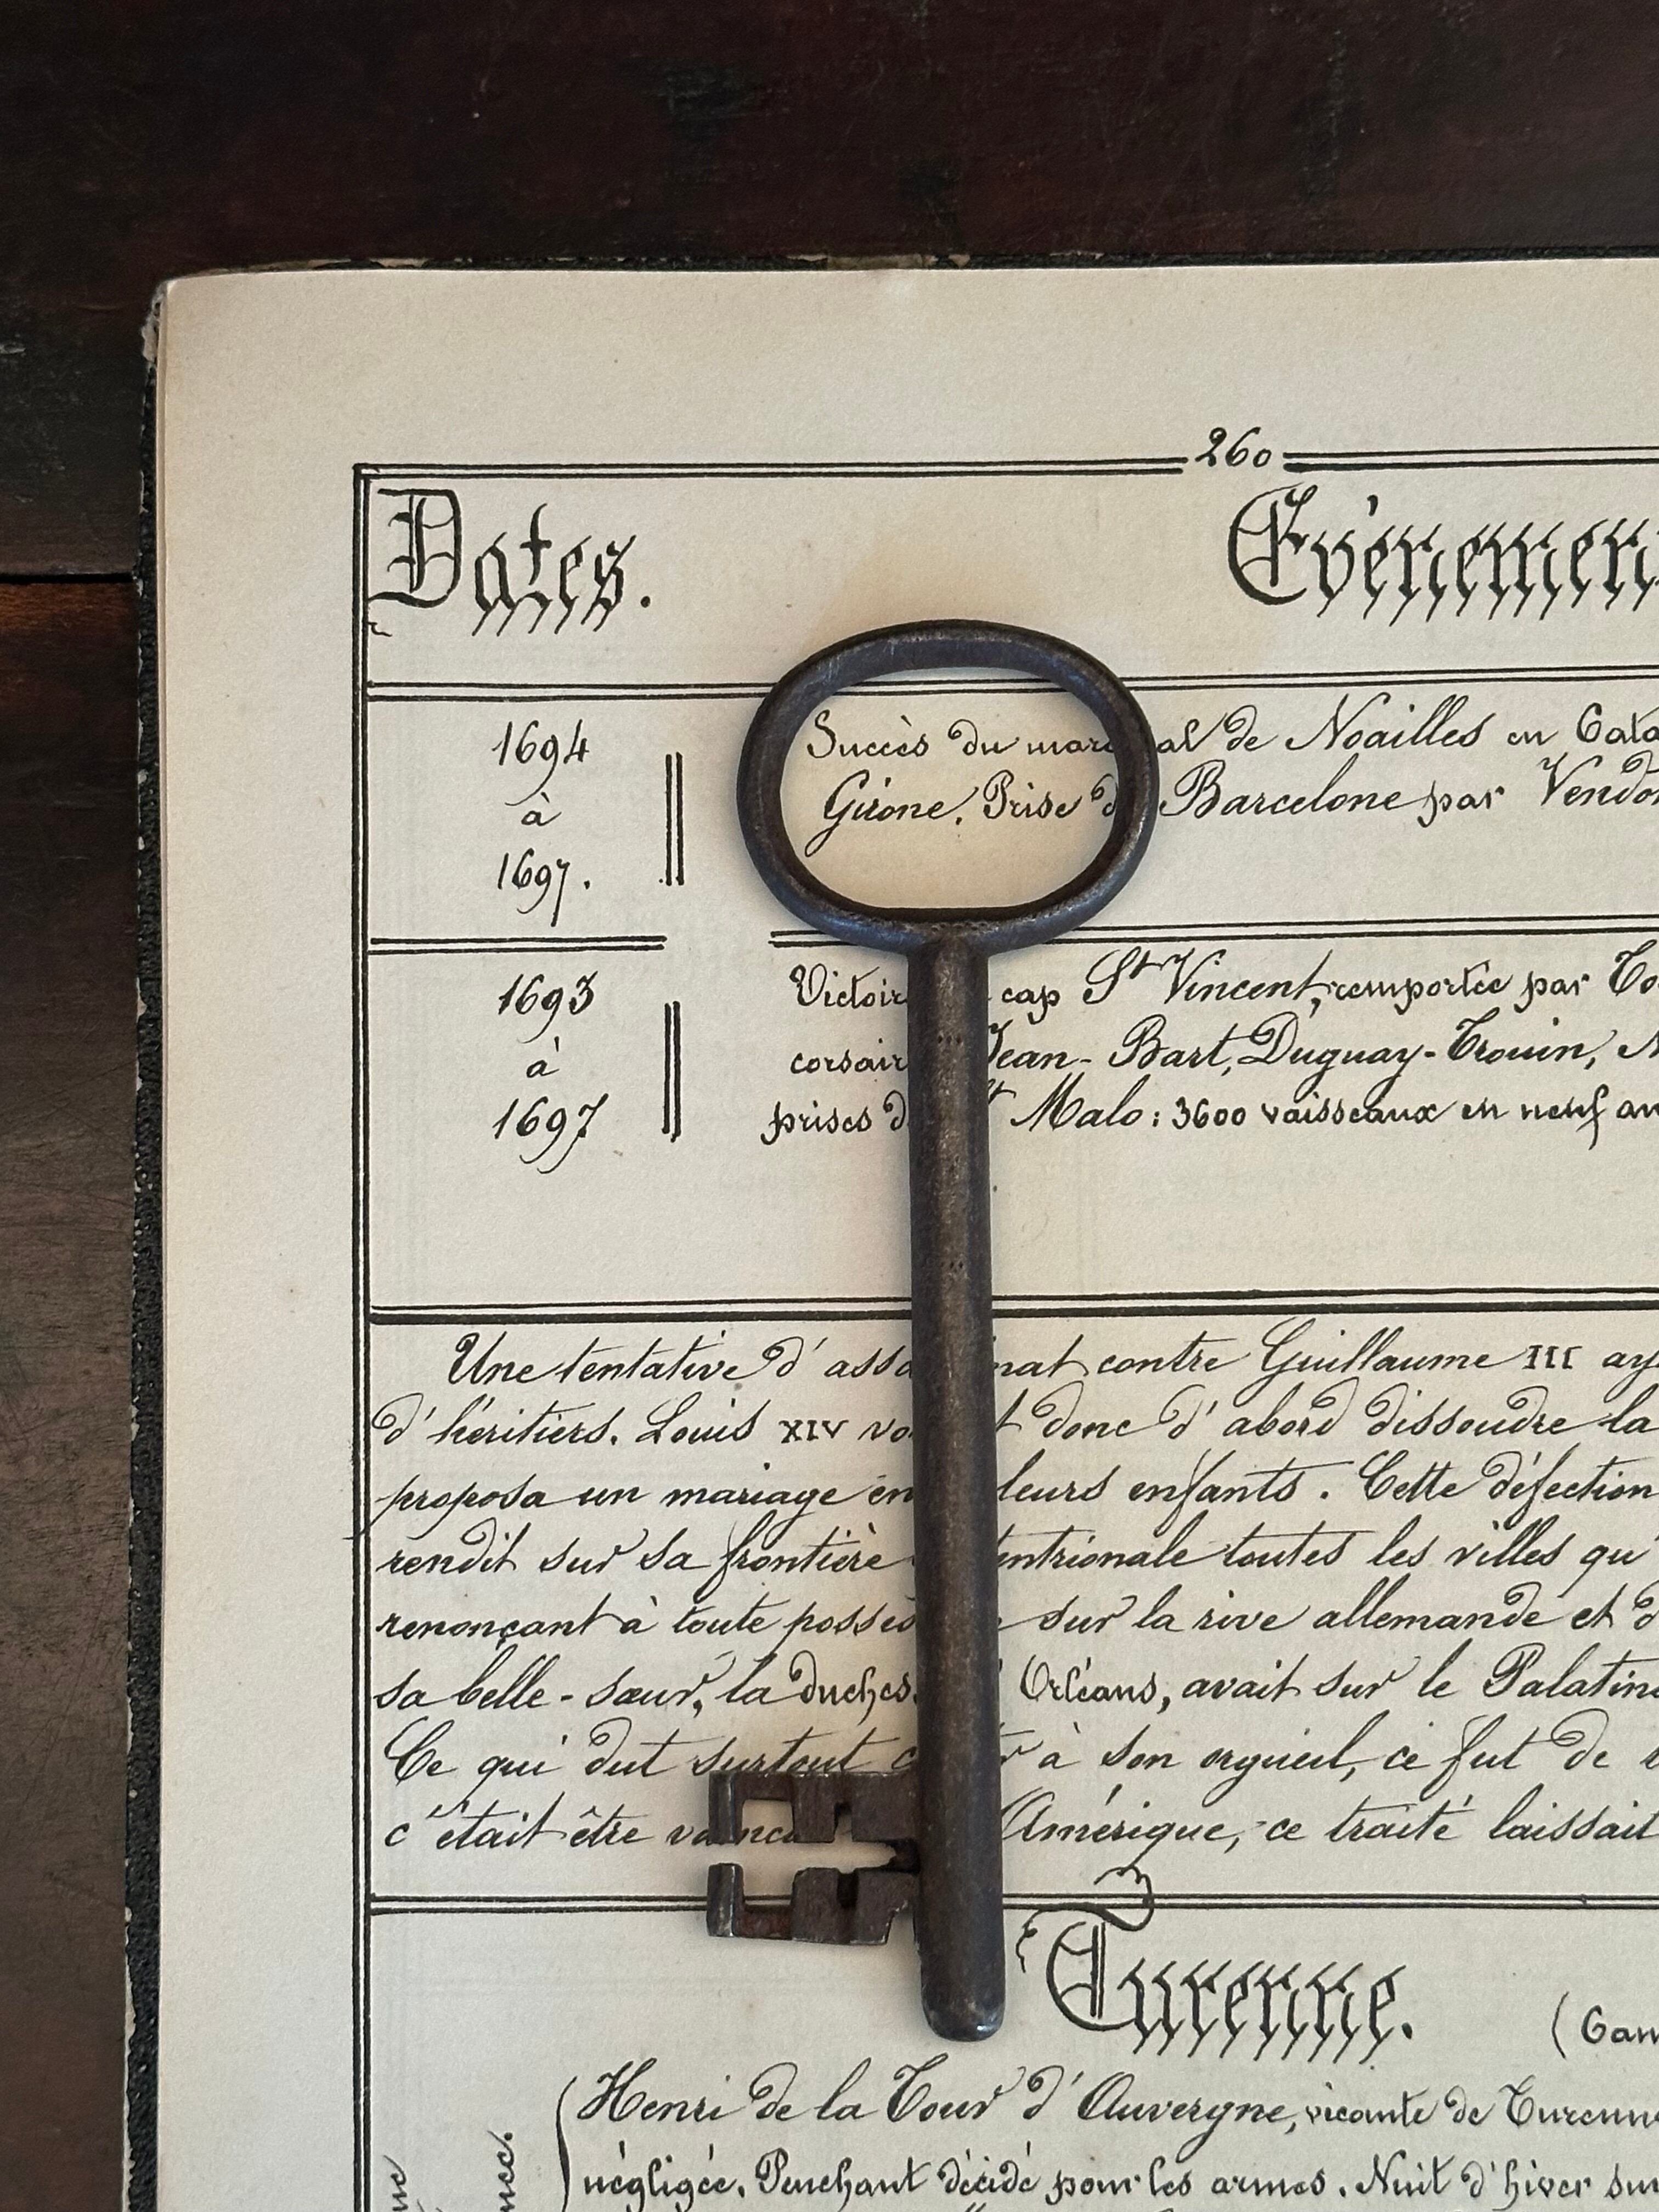 260
Dates. Evénemen
1694 à 1697.
Succès du mar al de Noailles en Cata
Girone. Prise d Barcelone par Vendo
1693 à 1697
Victoir cap St Vincent, remportée par To
corsair Jean-Bart, Duguay-Trouin, N
prises d St Malo: 3600 vaisseaux en neuf an
Une tentative d'assa nat contre Guillaume III ay
d'héritiers. Louis XIV vo t donc d'abord dissoudre la
proposa un mariage en leurs enfants. Cette défection
rendit sur sa frontière entrionale toutes les villes qu'
renonçant à toute posses sur la rive allemande et d
sa belle-sœur, la duches Orléans, avait sur le Palatina
Ce qui dut surtout c r à son orgueil, ce fut de r
c'était être vaincu Amérique, ce traité laissait
Turenne. (Cam
Henri de la Tour d'Auvergne, vicomte de Turenne
négligée. Penchant décidé pour les armes. Nuit d'hiver sur